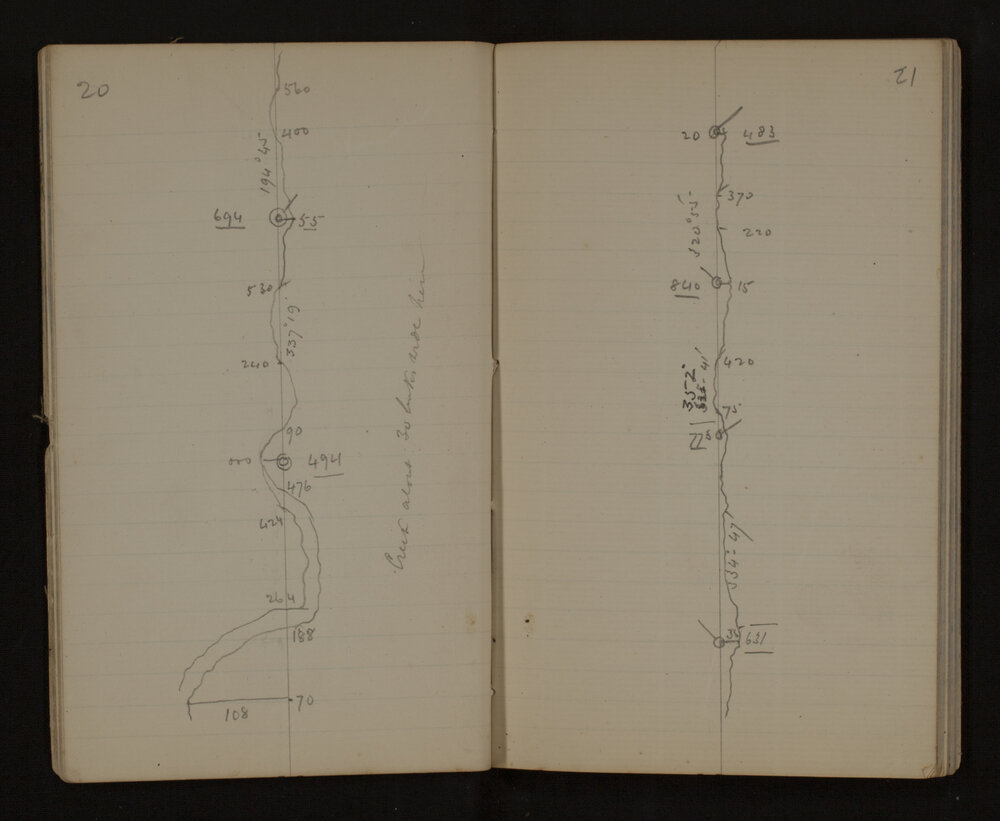 20
560
400
194° 45
694
55
530
337° 19'
240
90
494
476
424
264
188
70
108
Creek about 30 links wide here
21
20
483
370
220
320° 55'
840
15
420
352°
41'
75
334° 47'
631